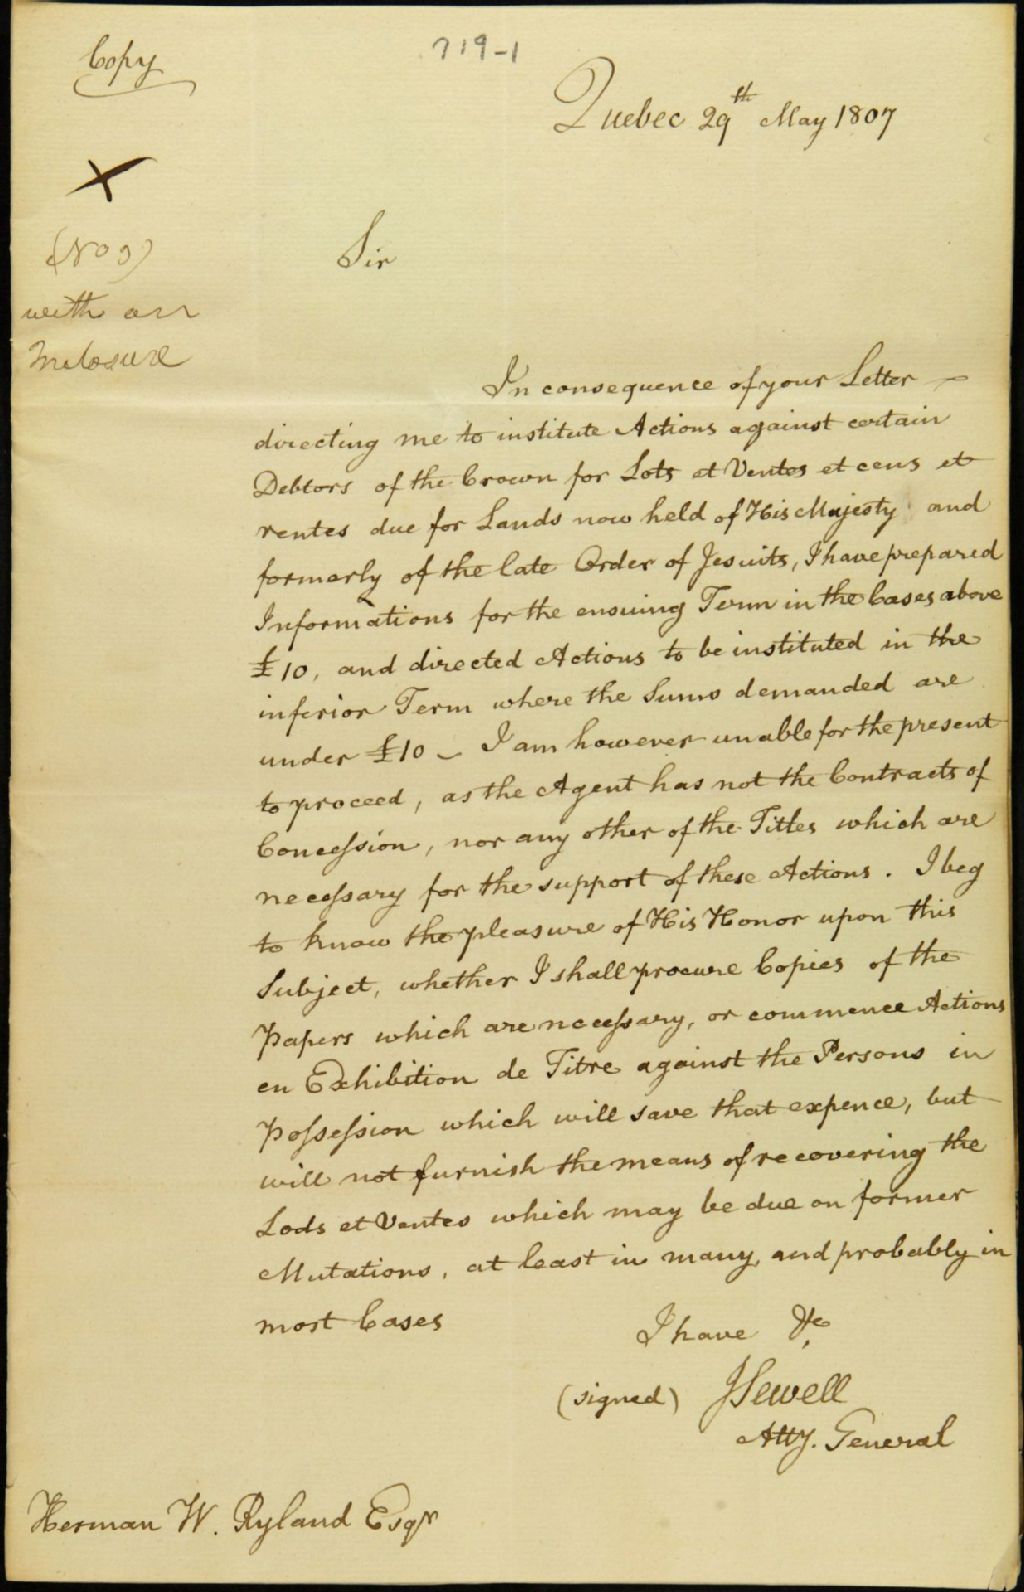 Copy
719-1
Quebec 29th May 1807
(No 3)
with an
Inclosure
Sir
In consequence of your Letter
directing me to institute Actions against certain
Debtors of the Crown for Lots et Ventes et cens et
rentes due for Lands now held of His Majesty and
formerly of the late Order of Jesuits, I have prepared
Informations for the ensuing Term in the Cases above
£10, and directed Actions to be instituted in the
inferior Term where the Sums demanded are
under £10 – I am however unable for the present
to proceed, as the Agent has not the Contracts of
Concession, nor any other of the Titles which are
necessary for the support of these Actions. I beg
to know the pleasure of His Honor upon this
Subject, whether I shall procure Copies of the
Papers which are necessary, or commence Actions
en Exhibition de Titre against the Persons in
Possession which will save that expence, but
will not furnish the means of recovering the
Lods et Ventes which may be due on former
Mutations, at least in many, and probably in
most Cases
I have &c
(signed) JSewell
Atty. General
Herman W. Ryland Esqr